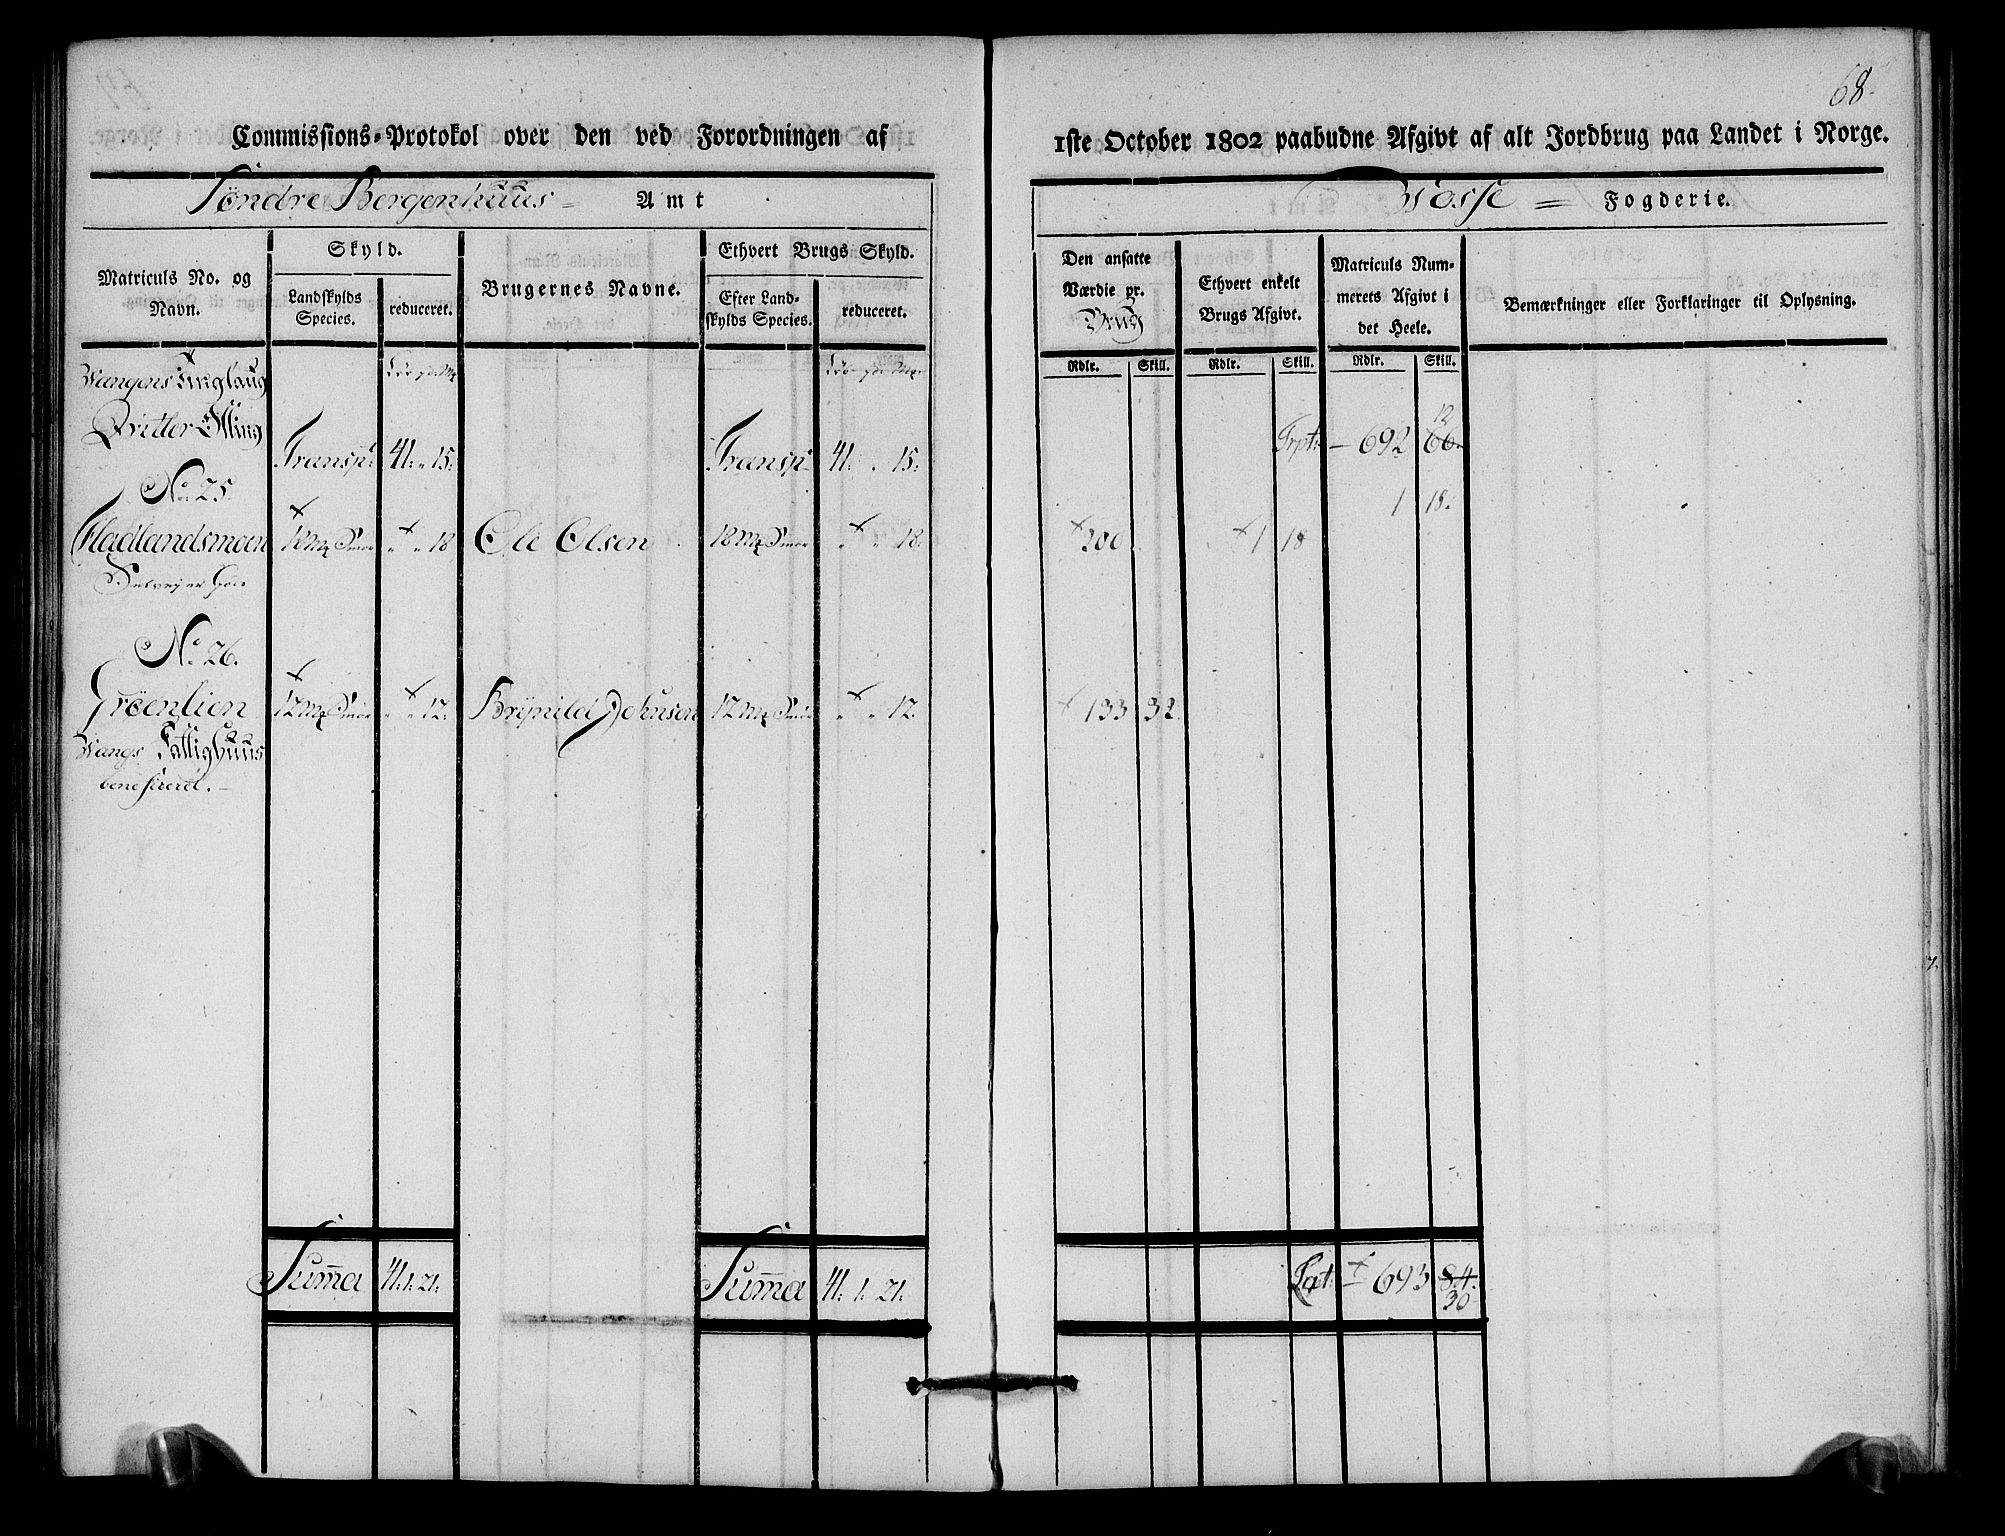 68.
Commissions-Protokol over den ved Forordningen af 1ste October 1802 paabudne Afgivt af alt Jordbrug paa Landet i Norge.
Søndre Bergenhuus Amt
Vosse Fogderie.
Matriculs No. og Navn.
Skyld.
Landskylds Species.
reduceret.
Brugernes Navne.
Ethvert Brugs Skyld.
Efter Landskylds Species.
reduceret.
Den ansatte Værdie pr. Brug
Rdlr. Skill.
Ethvert enkelt Brugs Afgivt.
Rdlr. Skill.
Matriculs Nummerets Afgivt i det Heele.
Rdlr. Skill.
Bemærkninger eller Forklaringer til Oplysning.
Vangens Tinglaug
Qvitler Otting
Transp: 41: " 15: Transp 41: " 15: Trpt: – 692 66 12
No. 25.
1 18.
Fladlandsmoen 18 Mk Smør " " 18 Ole Olsen 18 Mk Smør " " 18. 200 1 18
Selveyer
No. 26.
Grøenlien 12 Mk Smør " " 12. Brynild Johnsen 12 Mk Smør " " 12. 133 32.
Vangs Fattighuus
beneficeret.
Summa 41. 1. 21. Summa 41. 1. 21. Lat: 693 84.
30